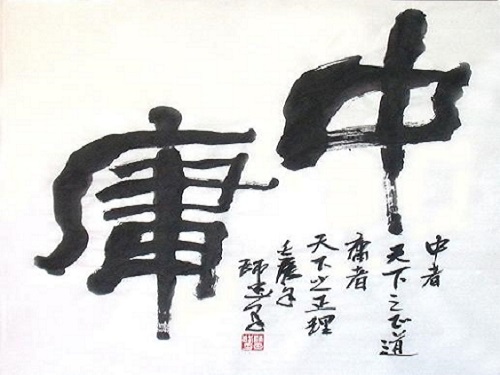 中庸
中者
天下之正道
庸者
天下之正理
壬辰年